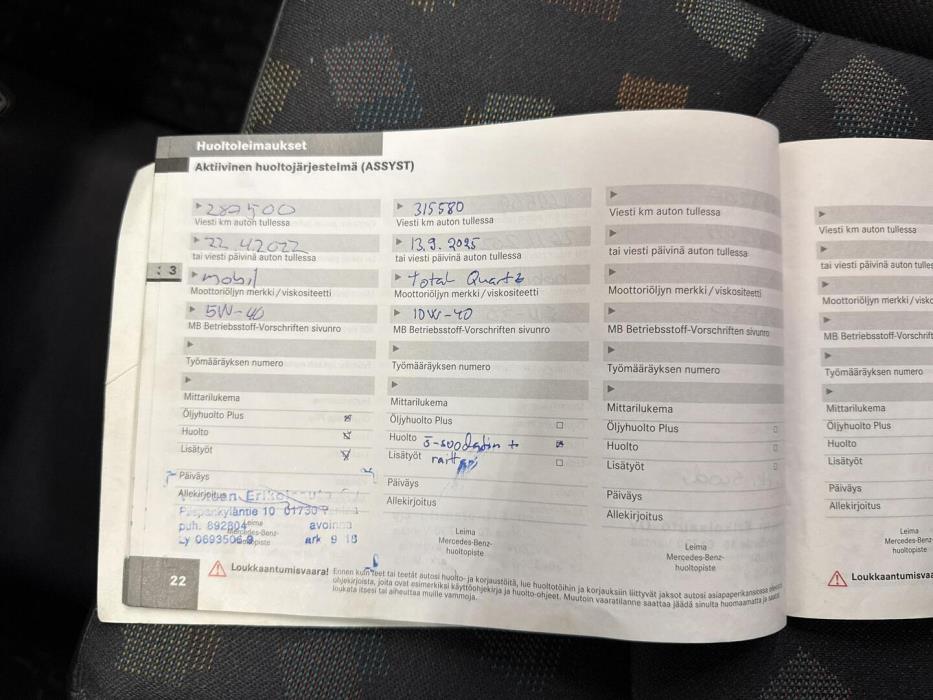 Huoltoleimaukset
Aktiivinen huoltojärjestelmä (ASSYST)
3
Viesti km auton tullessa
22.4.2022
tai viesti päivinä auton tullessa
mobil
Moottoriöljyn merkki / viskositeetti
5W-40
MB Betriebsstoff-Vorschriften sivunro
Työmääräyksen numero
Mittarilukema
Öljyhuolto Plus
Huolto
Lisätyöt
Päiväys
Allekirjoitus
10 01730
puh. 892804 avoinna
Ly 0693506-9 ark 9 18
Leima
Mercedes-Benz-
huoltopiste
315580
Viesti km auton tullessa
13.9.2025
tai viesti päivinä auton tullessa
Total Quartz
Moottoriöljyn merkki / viskositeetti
10W-40
MB Betriebsstoff-Vorschriften sivunro
Työmääräyksen numero
Mittarilukema
Öljyhuolto Plus
Huolto ö-suodatin +
Lisätyöt
Päiväys
Allekirjoitus
Leima
Mercedes-Benz-
huoltopiste
Viesti km auton tullessa
tai viesti päivinä auton tullessa
Moottoriöljyn merkki / viskositeetti
MB Betriebsstoff-Vorschriften sivunro
Työmääräyksen numero
Mittarilukema
Öljyhuolto Plus
Huolto
Lisätyöt
Päiväys
Allekirjoitus
Leima
Mercedes-Benz-
huoltopiste
22
Loukkaantumisvaara! Ennen kuin teet tai teetät autosi huolto- ja korjaustöitä, lue huoltotöihin ja korjauksiin liittyvät jaksot autosi asiapaperikansiossa
ohjekirjoista, joita ovat esimerkiksi käyttöohjekirja ja huolto-ohjeet. Muutoin vaaratilanne saattaa jäädä sinulta huomaamatta ja
loukata itsesi tai aiheuttaa muille vammoja.
Viesti km auton tullessa
tai viesti päivinä auton
Moottoriöljyn merkki /
MB Betriebsstoff-Vorschrift
Työmääräyksen numero
Mittarilukema
Öljyhuolto Plus
Huolto
Lisätyöt
Päiväys
Allekirjoitus
Leima
Mercedes-Benz-
huoltopiste
Loukkaantumisvaa